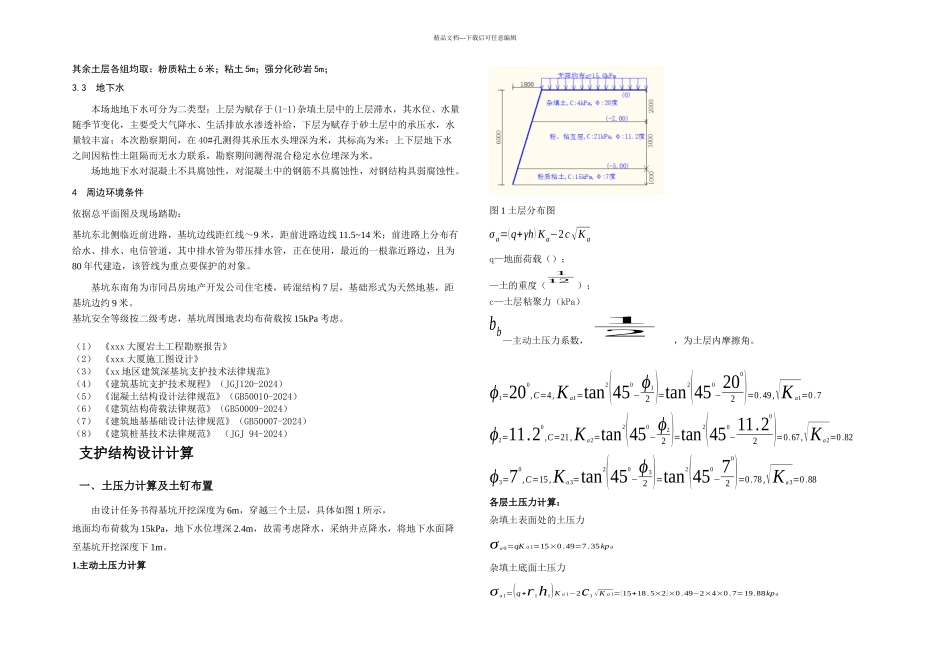 精品文档---下载后可任意编辑
其余土层各组均取：粉质粘土6米；粘土5m；强分化砂岩5m；
3.3 地下水
本场地地下水可分为二类型：上层为赋存于(1-1)杂填土层中的上层滞水，其水位、水量
随季节变化，主要受大气降水、生活排放水渗透补给，下层为赋存于砂土层中的承压水，水
量较丰富；本次勘察期间，在40#孔测得其承压水头埋深为米，其标高为米；上下层地下水
之间因粘性土阻隔而无水力联系，勘察期间测得混合稳定水位埋深为米。
场地地下水对混凝土不具腐蚀性，对混凝土中的钢筋不具腐蚀性，对钢结构具弱腐蚀性。
4 周边环境条件
依据总平面图及现场踏勘：
基坑东北侧临近前进路，基坑边线距红线～9米，距前进路边线11.5~14米；前进路上分布有
给水、排水、电信管道，其中排水管为带压排水管，正在使用，最近的一根靠近路边，且为
80年代建造，该管线为重点要保护的对象。
基坑东南角为市同吕房地产开发公司住宅楼，砖混结构7层，基础形式为天然地基，距
基坑边约9米。
基坑安全等级按二级考虑，基坑周围地表均布荷载按15kPa考虑。
（1） 《xxx大厦岩土工程勘察报告》
（2） 《xxx大厦施工图设计》
（3） 《xx地区建筑深基坑支护技术法律规范》
（4） 《建筑基坑支护技术规程》（JGJ120-2024）
（5） 《混凝土结构设计法律规范》（GB50010-2024）
（6） 《建筑结构荷载法律规范》（GB50009-2024）
（7） 《建筑地基基础设计法律规范》（GB50007-2024）
（8） 《建筑桩基技术法律规范》 （JGJ 94-2024）
支护结构设计计算
一、土压力计算及土钉布置
由设计任务书得基坑开挖深度为6m，穿越三个土层，具体如图1所示，
地面均布荷载为15kPa，地下水位埋深2.4m，故需考虑降水，采纳井点降水，将地下水面降
至基坑开挖深度下1m。
1.主动土压力计算
无限均布q=15.0kPa
1800
(0)
杂填土,C:4kPa,Φ:20度
2000
(-2.00)
6000
粉、粘互层,C:21kPa,Φ:11.2度
3000
(-5.00)
粉质粘土,C:15kPa,Φ:7度
1000
图1土层分布图
σa=(q+γh)Ka−2c√Ka
q—地面荷载（）；
—土的重度（1/12）；
c—土层粘聚力（kPa）
bb—主动土压力系数， ，为土层内摩擦角。
ϕ1=20⁰,C=4,Ka1=tan²(45⁰−ϕ1/2)=tan²(45⁰−20⁰/2)=0.49,√Ka1=0.7
ϕ2=11.2⁰,C=21,Ka2=tan²(45⁰−ϕ2/2)=tan²(45⁰−11.2⁰/2)=0.67,√Ka2=0.82
ϕ3=7⁰,C=15,Ka3=tan²(45⁰−ϕ3/2)=tan²(45⁰−7⁰/2)=0.78,√Ka3=0.88
各层土压力计算：
杂填土表面处的土压力
σa0=qKa1=15×0.49=7.35kpa
杂填土底面土压力
σa1=(q+r1h1)Ka1−2C1√Ka1=(15+18.5×2)×0.49−2×4×0.7=19.88kpa